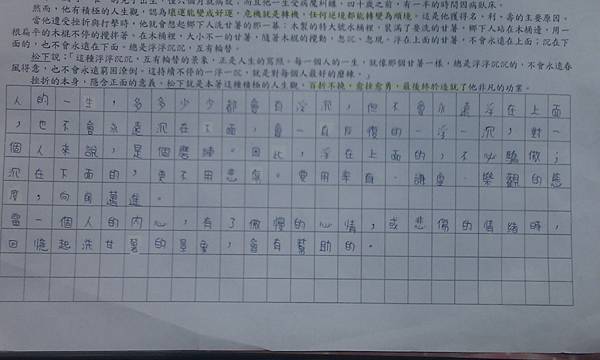 然而,他有積極的人生觀,認為壞運能變成好運,危機就是轉機,任何逆境都能轉變為順境,這是他獲得名、利、壽的主要原因。
當他遭受挫折與打擊時,他就會想起鄉下人洗甘薯的那一幕:木製的特大號水桶裡,裝滿了要洗的甘薯,鄉下人站在木桶邊,用一
根扁平的木棍不停的攪拌著。在木桶裡,大小不一的甘薯,隨著木棍的攪動,忽沉,忽現。浮在上面的甘薯,不會永遠在上面;沉在下
面的,也不會永遠在下面。總是浮浮沉沉,互有輪替。
松下說:「這種浮浮沉沉,互有輪替的景象,正是人生的寫照。每一個人的一生,就像那個甘薯一樣,總是浮浮沉沉,不會永遠春
風得意,也不會永遠窮困潦倒。這持續不停的一浮一沉,就是對每個人最好的磨練。」
挫折的本身,隱含正面的意義。松下就是本著這種積極的人生觀,百折不撓,愈挫愈勇,最後終於造就了他非凡的功業。
人的一生,多多少少都會有浮沉,但不會永遠浮在上面
,也不會永遠沉在下面,會一直反復的一浮一沉,對一
個人來說,是個磨練。因此,浮在上面的,不必驕傲;
沉在下面的,更不用悲哀。要用率身、謙虛、樂觀的態
度,向前邁進。
當一個人的內心,有了傲慢的心情,或悲傷的情緒時,
回憶起洗甘薯的景象,會有幫助的。